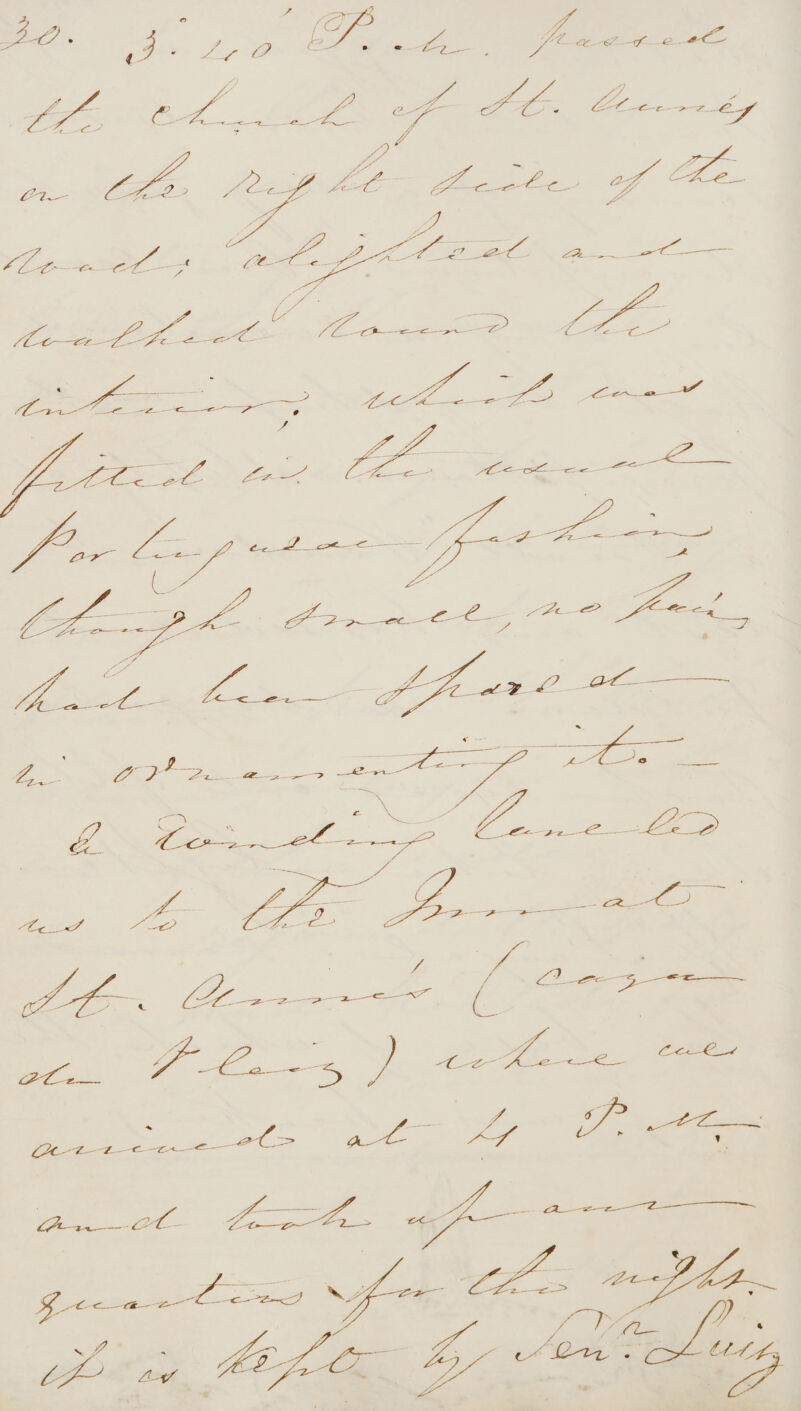 30. 3° 40' P. M. passed
the Church of St. Anne's
on the right side of the
road; alighted and
walked round the
interior; which was
fitted in the usual
Portuguese fashion,
though small, no pains
had been spared
in ornamenting it. —
a winding lane led
us to the Inn at
St. Anne's (caza
de Sleiz) where we
arrived at 4 P. M.
and took up our
quarters for the night.
it is kept by Senr. Luiz